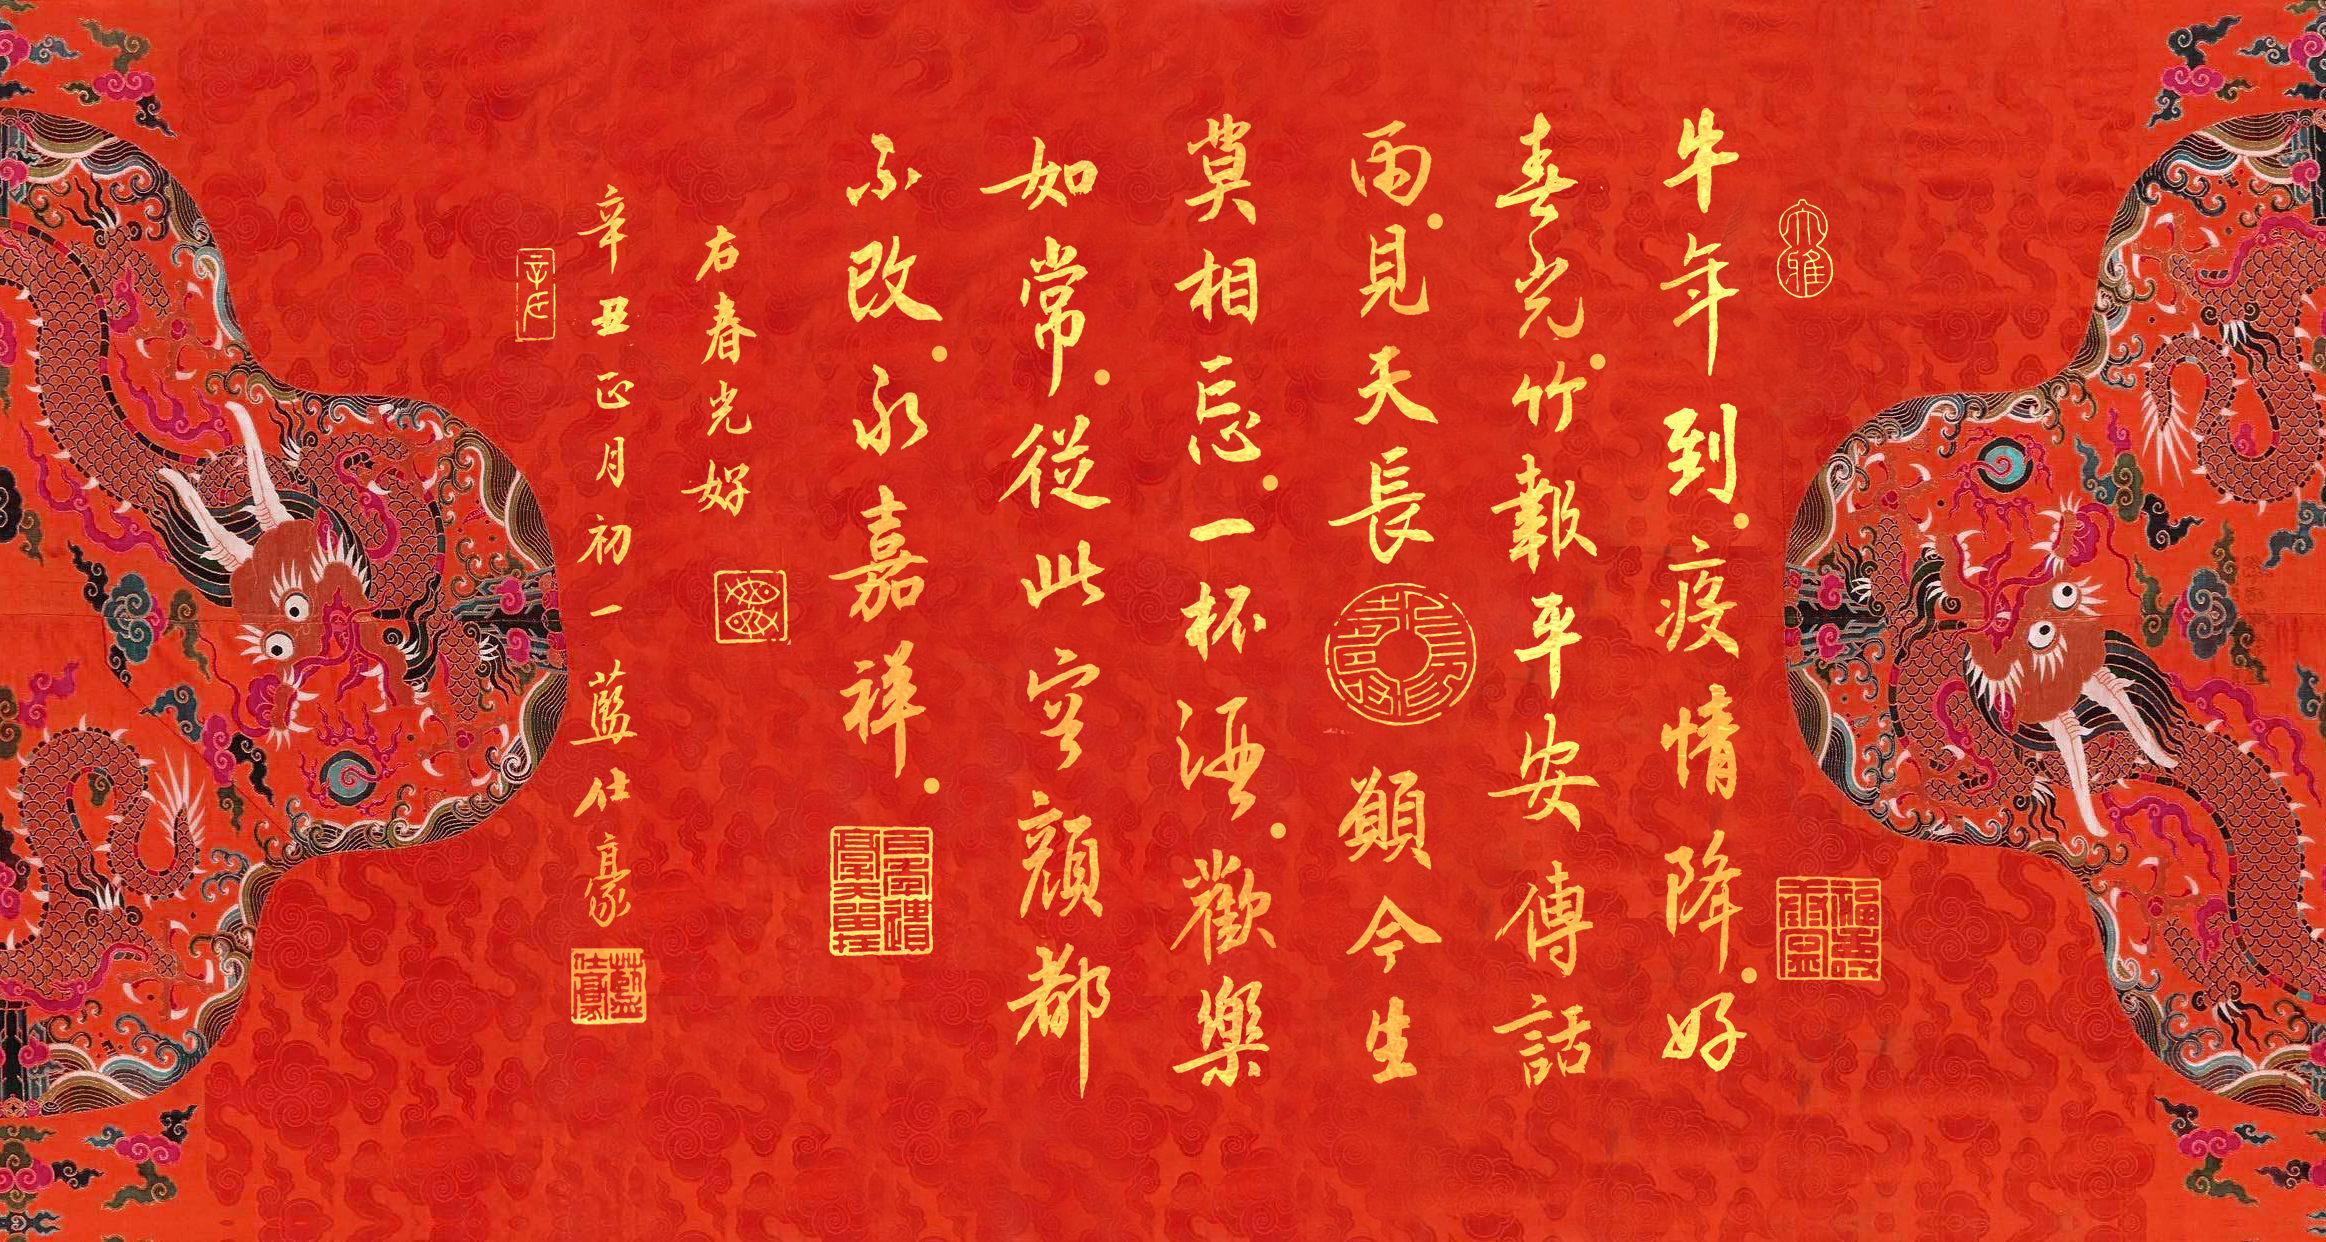 牛年到。疫情降。好
春光。竹報平安傳話
雨。見天長 願今生
莫相忘。一杯酒。歡樂
如常。從此容顏都
不改。永嘉祥。
右春光好
辛丑正月初一 藍仕豪